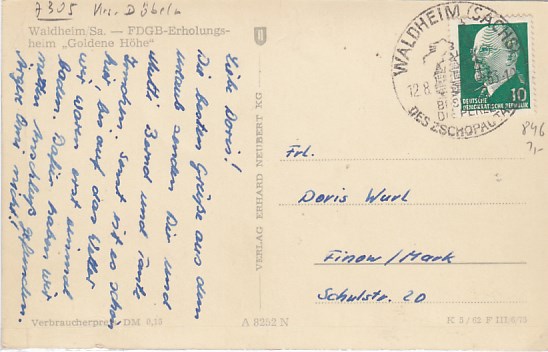 7305 Krs. Döbeln
Waldheim/Sa. — FDGB-Erholungs-
heim „Goldene Höhe"
Liebe Doris!
Die besten Grüße aus dem
Urlaub senden Dir und
Mutti Bernd und Tante
Annchen. Sonst ist es schön
hier, bis auf das Wetter
wir waren erst einmal
baden. Dafür haben wir
netten Anschluß gefunden.
Ärgere Omi nicht!
Verbraucherpreis DM 0,15
VERLAG ERHARD NEUBERT KG
A 8252 N
WALDHEIM (SACHS)
12.8.
DES ZSCHOPAUTA
10
DEUTSCHE
DEMOKRATISCHE REPUBLIK
846
7,-
Frl.
Doris Wurl
Finow/Mark
Schulstr. 20